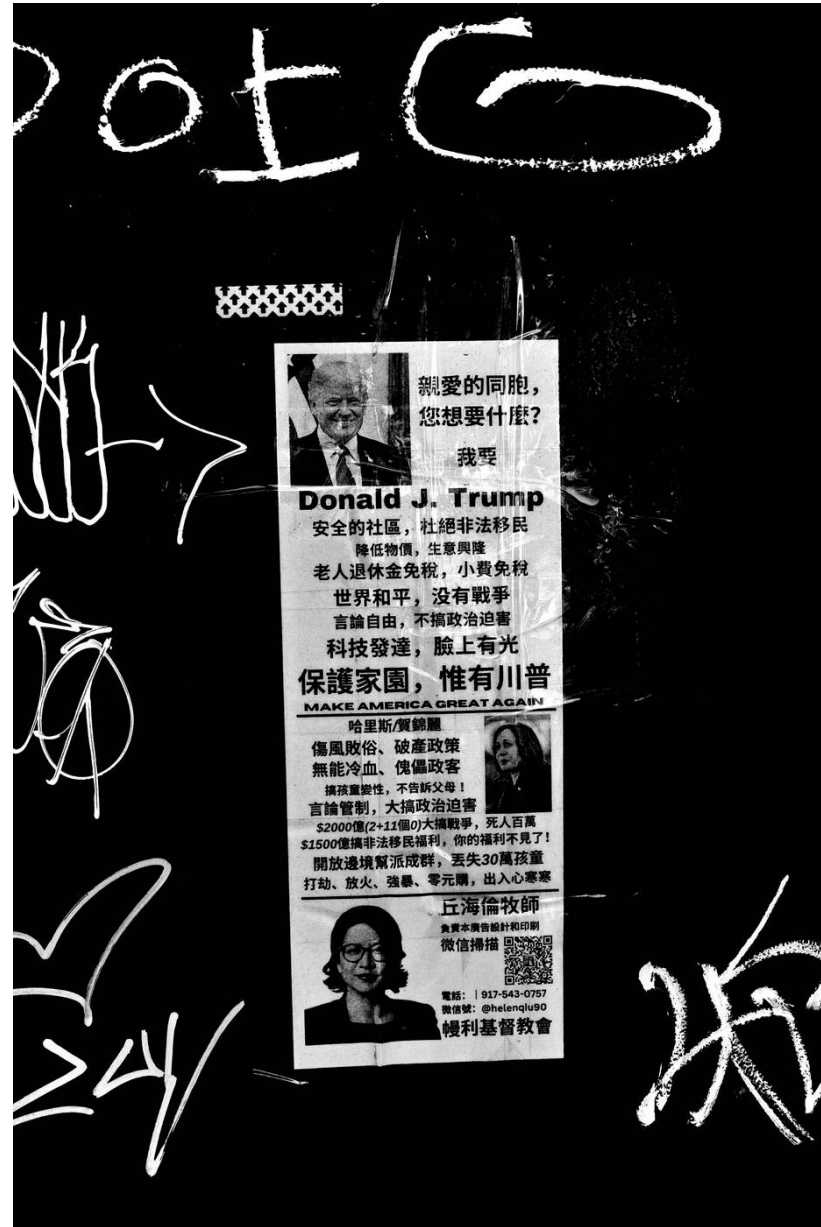 親愛的同胞，
您想要什麼？
我要
Donald J. Trump
安全的社區，杜絕非法移民
降低物價，生意興隆
老人退休金免稅，小費免稅
世界和平，没有戰爭
言論自由，不搞政治迫害
科技發達，臉上有光
保護家園，惟有川普
MAKE AMERICA GREAT AGAIN
哈里斯/賀錦麗
傷風敗俗、破產政策
無能冷血、傀儡政客
搞孩童變性，不告訴父母！
言論管制，大搞政治迫害
$2000億(2+11個0)大搞戰爭，死人百萬
$1500億搞非法移民福利，你的福利不見了！
開放邊境幫派成群，丟失30萬孩童
打劫、放火、強暴、零元購，出入心寒寒
丘海倫牧師
負責本廣告設計和印刷
微信掃描
電話：｜917-543-0757
微信號：@helenqiu90
幔利基督教會